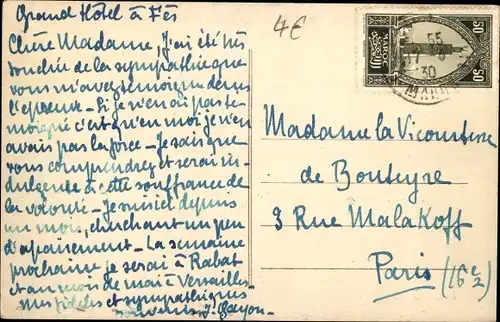 Grand Hôtel à Fès
4€
Chère Madame, J'ai été très
touchée de la sympathie que
vous m'avez témoignée dans
l'épreuve - Si je n'en ai pas té-
moigné c'est qu'en moi je n'en
avais pas la force - Je sais que
vous comprendrez et serez in-
dulgente à cette souffrance de
la volonté - Je suis ici depuis
un mois, cherchant un peu
d'apaisement - La semaine
prochaine je serai à Rabat
et au mois de mai à Versailles -
Mes fidèles et sympathiques
souvenirs J.
50 MAROC 50
55
17
30
Madame la Vicomtesse
de Bouteyre
9 Rue Malakoff
Paris (16e)